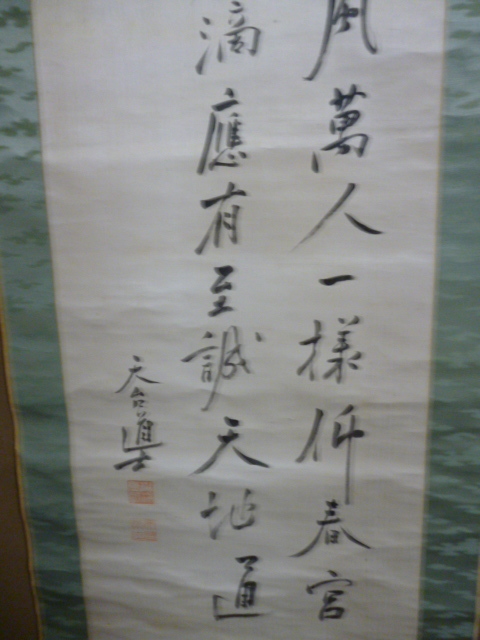 風萬人一樣仰春宮
滴應有至誠天地通
天台道士